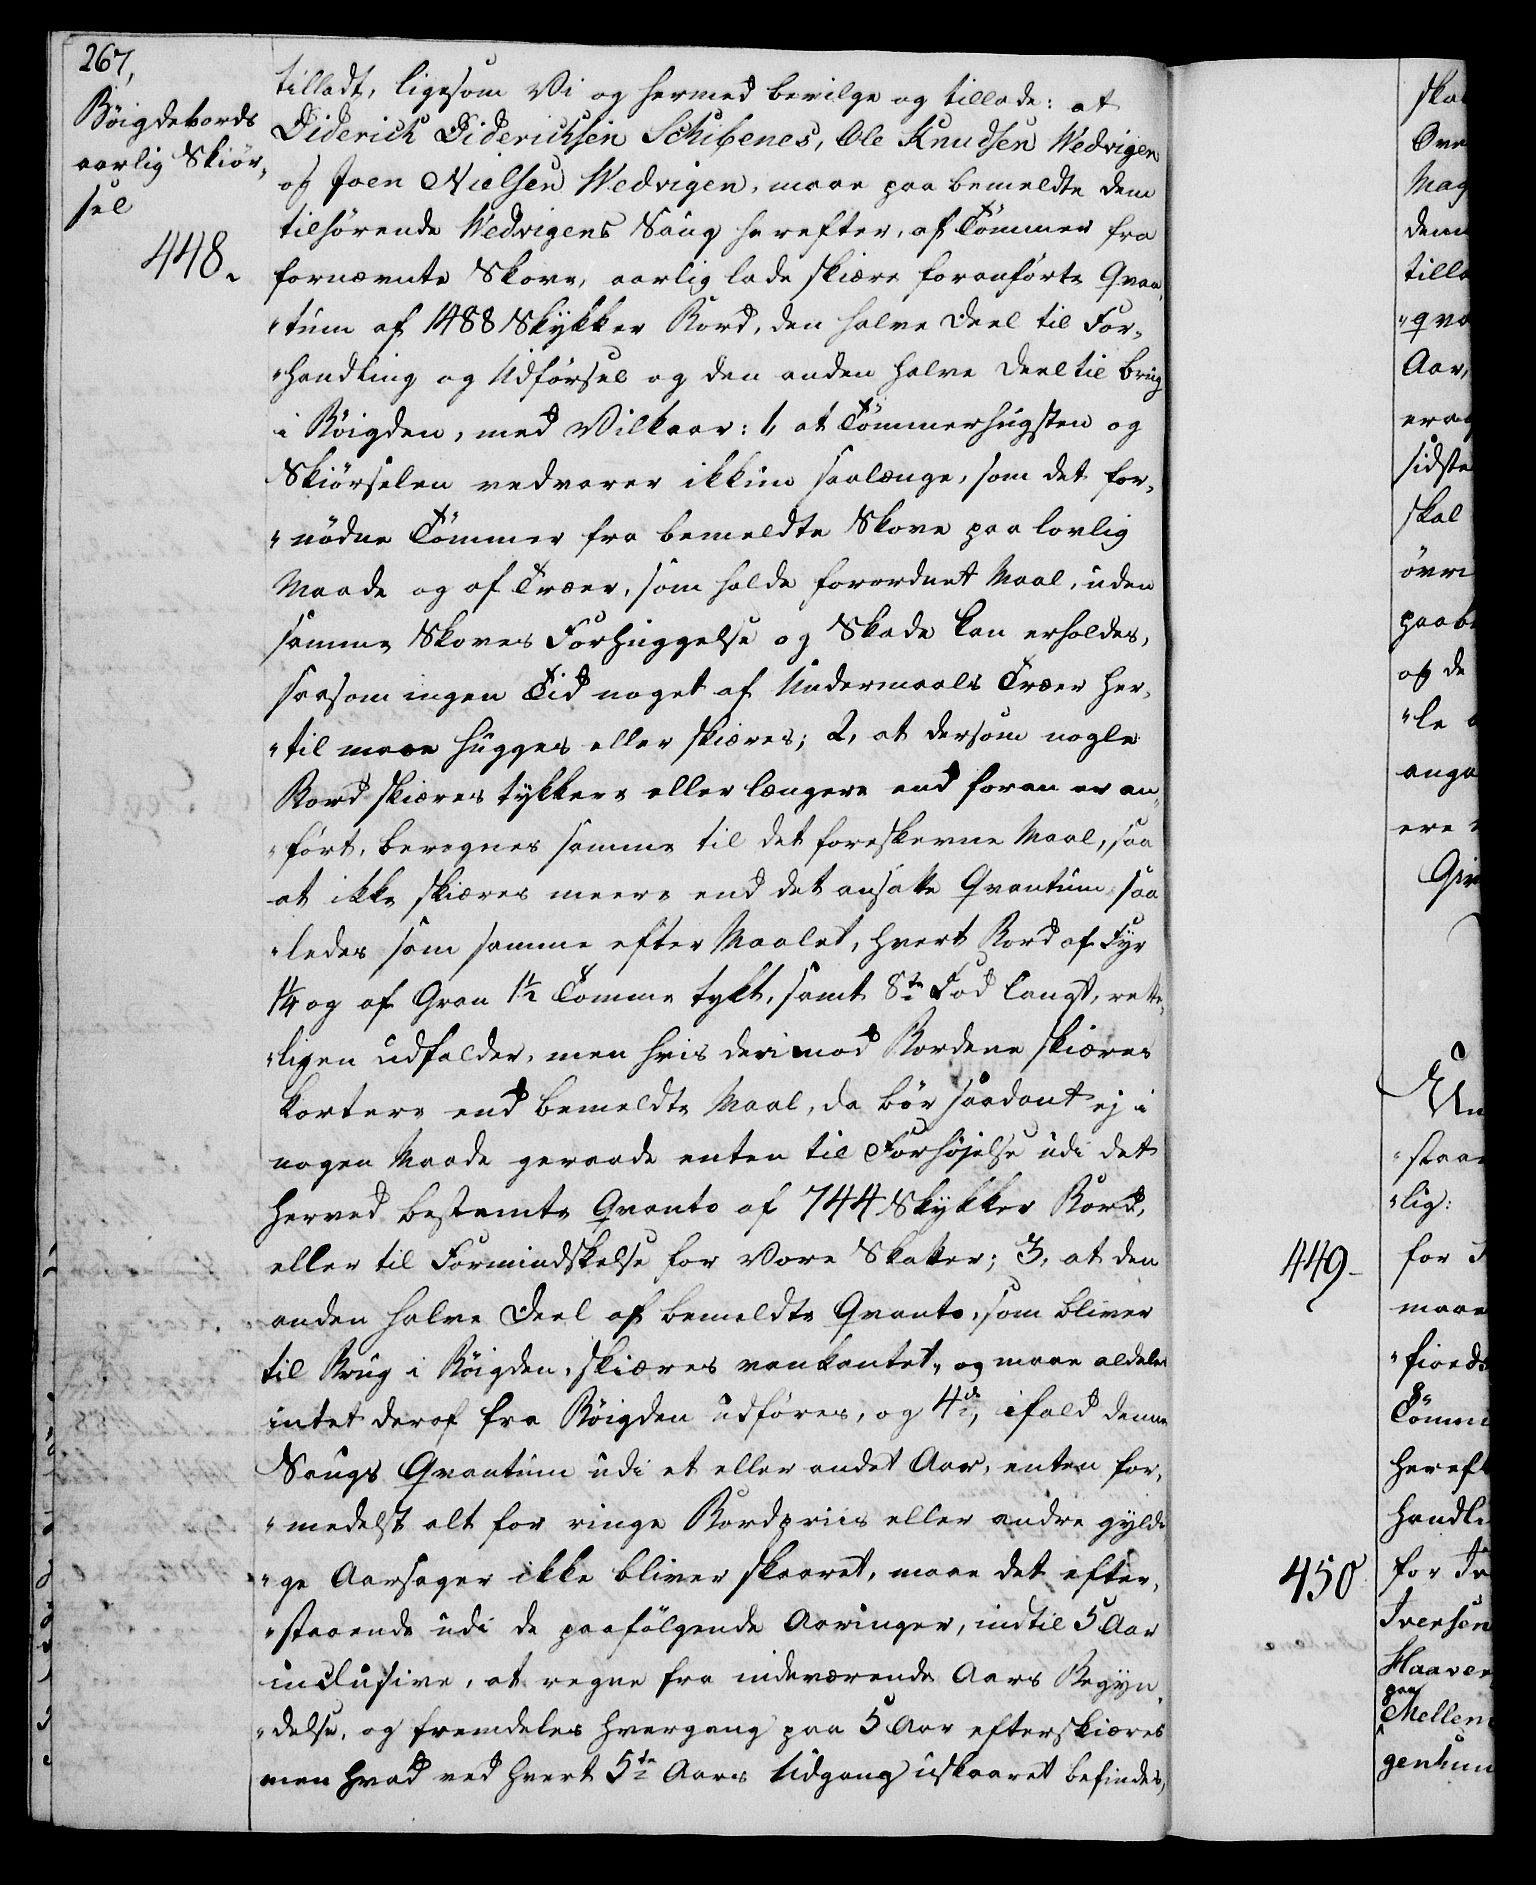 267,
Böigdebords
aarlig Skiör,
sel
448.
tilladt, ligesom Vi og hermed bevilge og tillade: at
Diderich Dideriksen Schibenes, Ole Knudsen Wedvigen
og Joen Nielsen Wedvigen, maae paa bemeldte dem
tilhørende Wedvigens Saug herefter, af Tömmer fra
fornævnte Skove, aarlig lade skiære foranførte Qvan,
"tum af 1488 Stykker Bord, den halve Deel til For,
"handling og Udførsel og den anden halve Deel til brug
i Böigden, med Vilkaar: 1, at Tömmerhugsten og
Skiörselen vedvarer ikkun saalænge, som det for,
"nödne Tömmer fra bemeldte Skove paa lovlig
Maade og af Træer, som holde forordnet Maal, uden
samme Skoves Forhuggelse og Skade kan erholdes,
saasom ingen Tid noget af Undermaals Træer her,
"til maae hugges eller skiæres; 2, at dersom nogle
Bord skiæres tykkere eller længere end foran er an,
"fört, beregnes samme til det foreskrevne Maal, saa
at ikke skiæres meere end det ansatte Qvantum saa
"ledes som samme efter Maalet, hvert Bord af Fyr
1¼ og af Gran 1½ Tomme tykt, samt 8te Fod langt, rette,
"ligen udfalder, men hvis derimod Bordene skiæres
kortere end bemeldte Maal, da bör saadant ej i
nogen Maade geraade enten til Forhöjelse udi det
herved bestemte Qvanto af 744 Stykker Bord,
eller til Formindskelse for Vore Skatter; 3, at den
anden halve Deel af bemeldte Qvanto, som bliver
til Brug i Böigden, skiæres vankantet, og maae aldeles
intet deraf fra Böigden udföres, og 4de, ifald denne
Saugs Qvantum udi et eller andet Aar, enten for,
"medelst alt for ringe Bordpriis eller andre gyldi
"ge Aarsager ikke bliver skaaret, maae det efter,
"staaende udi de paafölgende Aaringer, indtil 5 Aar
inclusive, at regne fra indeværende Aars Begyn,
"delse, og fremdeles hvergang paa 5 Aar efterskiæres
men hvad ved hvert 5te Aars Udgang uskaaret befindes,
449
450
Mag
tilla
"qvo
Aar,
sidste
skal
og de
"le
anga
ere
Giv
"lig:
for
maae
Tömm
hereft
handli
for
Iversen
Haaven
paa
Mellem